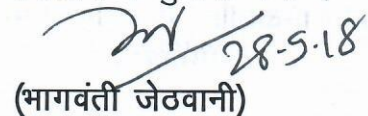 28-9-18
(भागवंती जेठवानी)